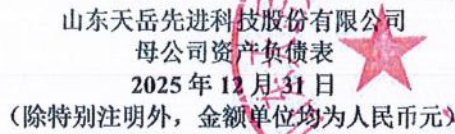 山东天岳先进科技股份有限公司
母公司资产负债表
2025年12月31日
(除特别注明外，金额单位均为人民币元)